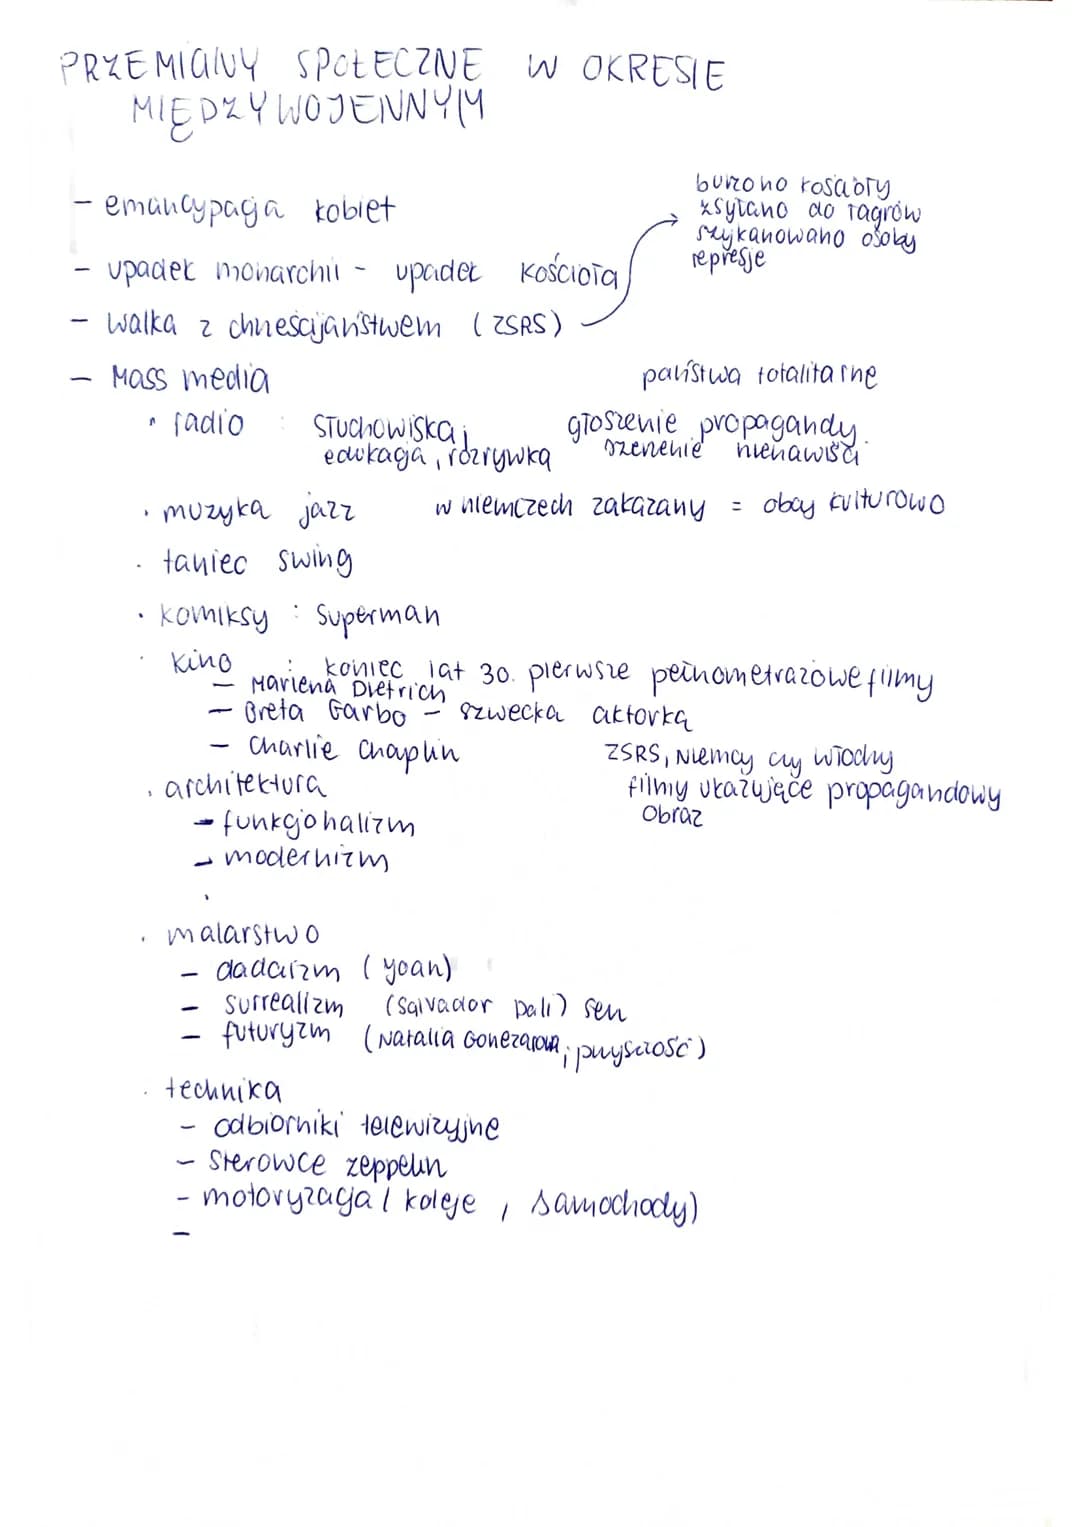 PRZEMIANY SPOŁECZNE W OKRESIE
MIĘDZYWOJENNYM
- emancypacja kobiet
burzono kościoły
zsyłano do łagrów
szykanowano osoby
represje
- upadek monarchii - upadek Kościoła
- walka z chrześcijaństwem (ZSRS)
- Mass media
państwa totalitarne
• radio : słuchowiska; głoszenie propagandy.
edukacja, rozrywka szerzenie nienawiści
• muzyka jazz w niemczech zakazany = obcy kulturowo
• taniec swing
• komiksy : Superman
• Kino : koniec lat 30. pierwsze pełnometrażowe filmy
- Marlena Dietrich
- Greta Garbo - szwecka aktorka
- Charlie Chaplin
ZSRS, Niemcy czy Włochy
filmy ukazujące propagandowy
obraz
• architektura
- funkcjonalizm
- modernizm
•
• malarstwo
- dadaizm (yoan)
- surrealizm (Salvador Dali) sen
- futuryzm (Natalia Gonczarowa; przyszłość)
• technika
- odbiorniki telewizyjne
- Sterowce zeppelin
- motoryzacja (koleje, samochody)
-